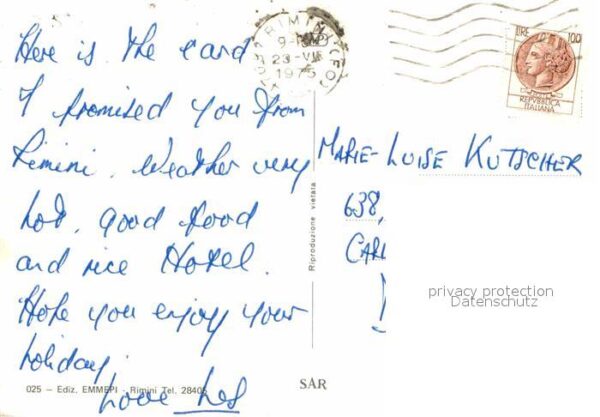 Here is the card
I promised you from
Rimini. Weather very
hot, good food
and nice Hotel.
Hope you enjoy your
holiday.
Love Les
025 — Ediz. EMMEPI - Rimini Tel. 28405
Riproduzione vietata
SAR
RIMINI
23-VII
1975
LIRE 100
REPVBBLICA
ITALIANA
MARIE-LUISE KUTSCHER
638,
privacy protection
Datenschutz